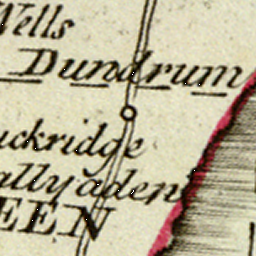 Wells
Dundrum
uckridge
allyaden
EEN